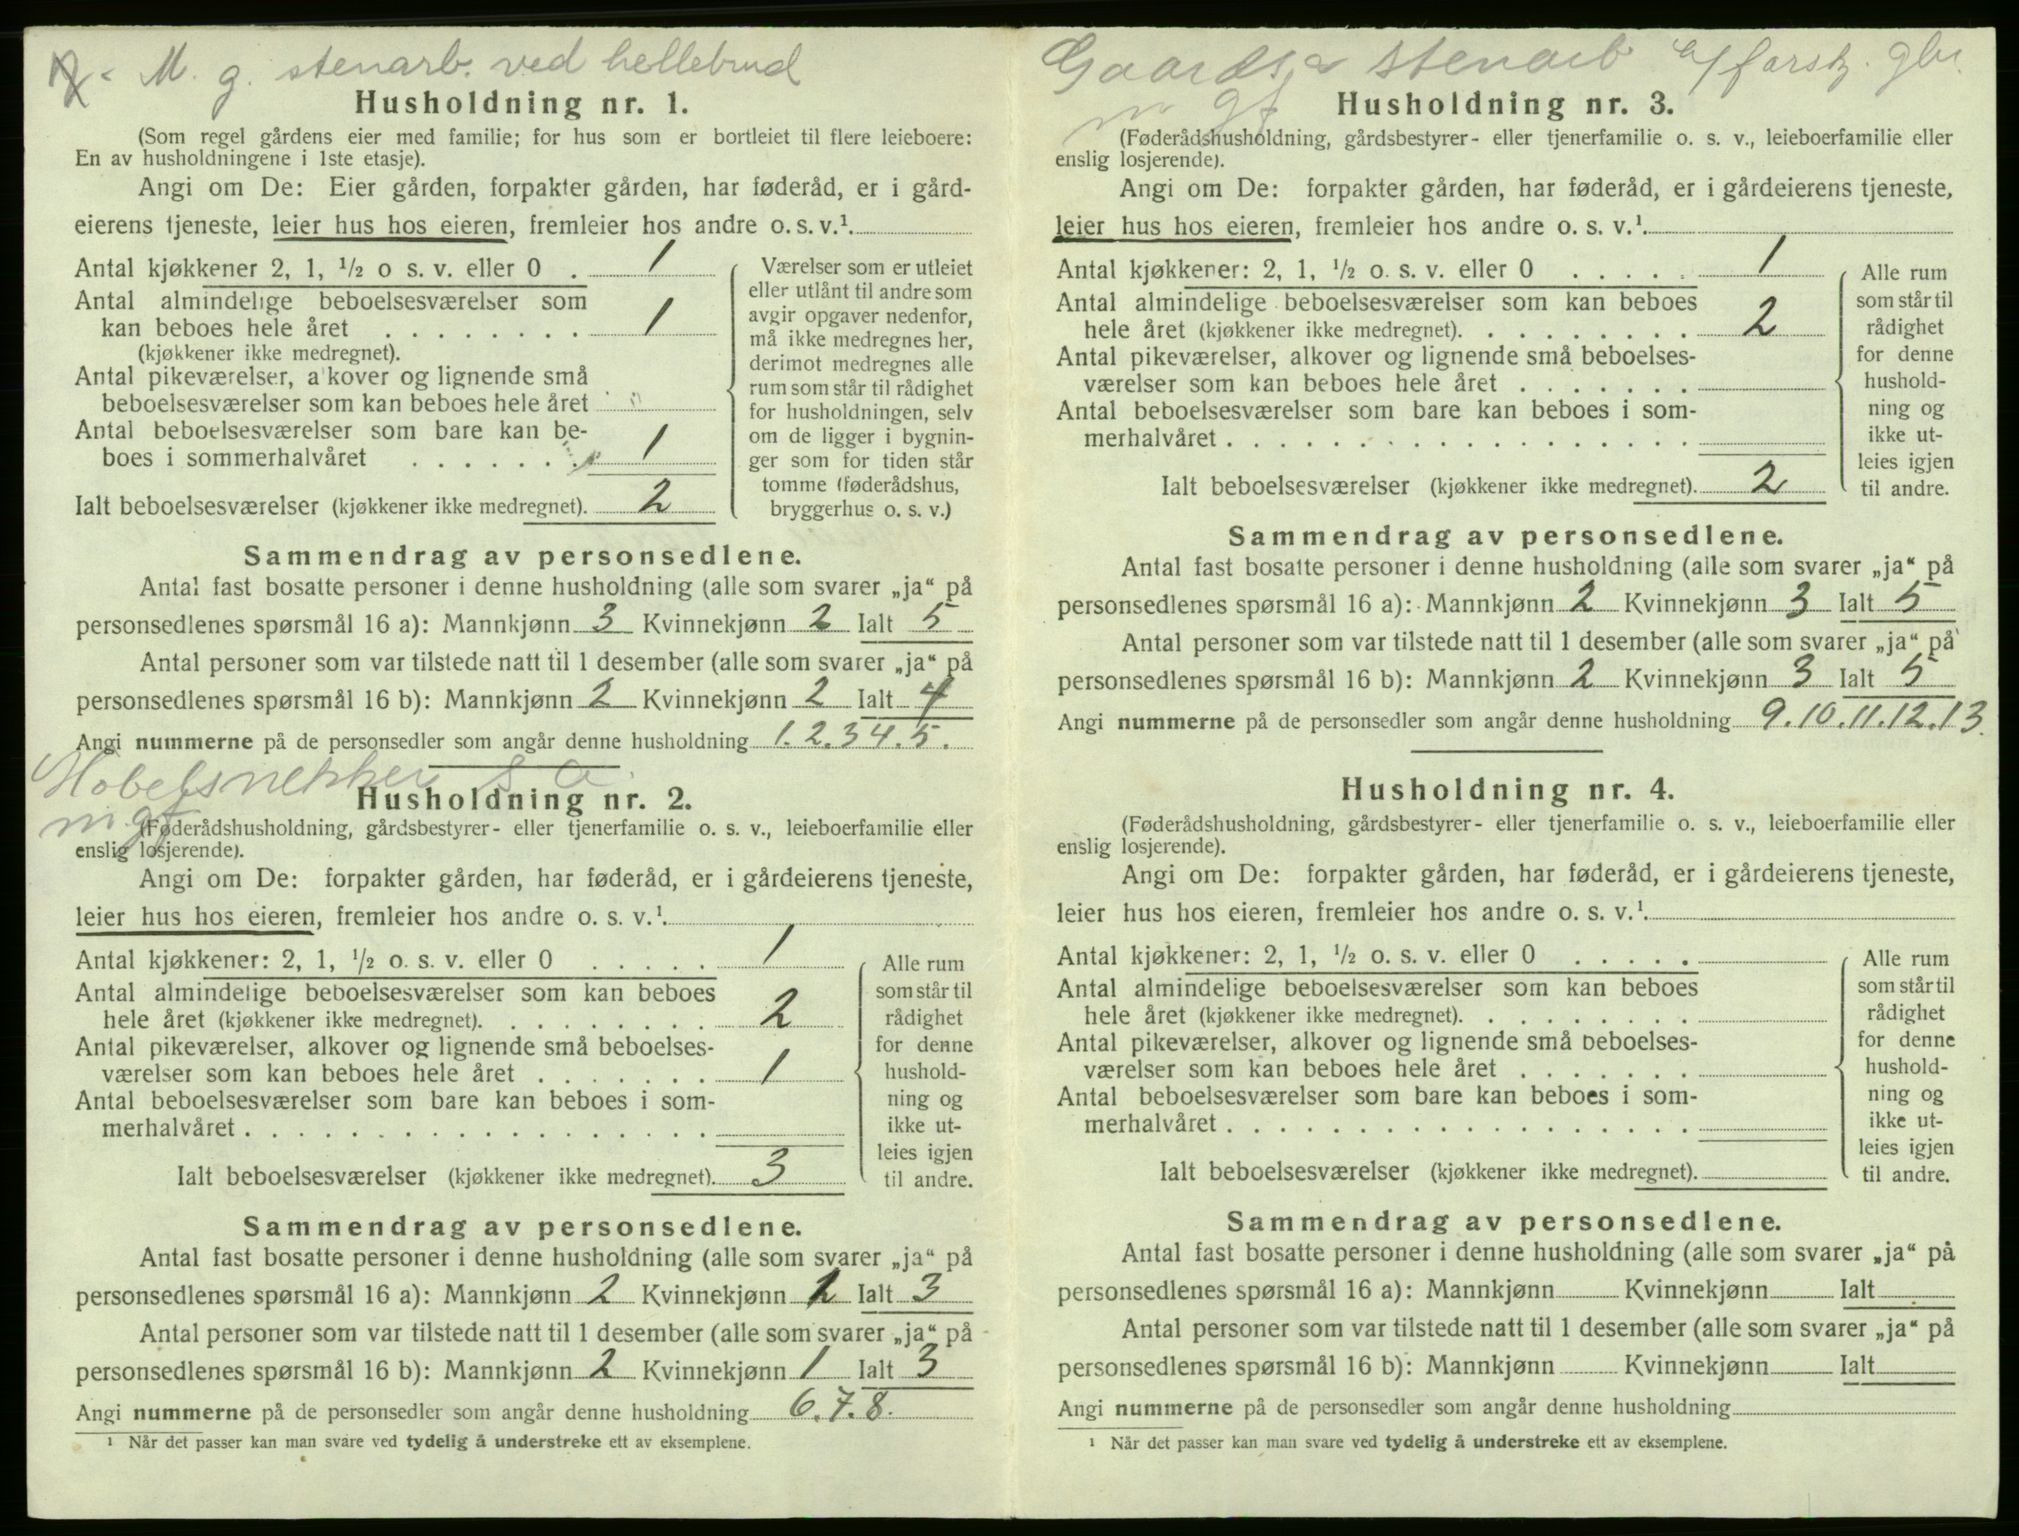 M. g. stenarb. ved hellebrud
Husholdning nr. 1.
(Som regel gårdens eier med familie; for hus som er bortleiet til flere leieboere:
En av husholdningene i 1ste etasje).
Angi om De: Eier gården, forpakter gården, har føderåd, er i gård-
eierens tjeneste, leier hus hos eieren, fremleier hos andre o. s. v.¹
Antal kjøkkener 2, 1, ½ o s. v. eller 0 . 1
Antal almindelige beboelsesværelser som
kan beboes hele året . . . . . . . . 1
(kjøkkener ikke medregnet).
Antal pikeværelser, a'kover og lignende små
beboelsesværelser som kan beboes hele året
Antal beboelsesværelser som bare kan be-
boes i sommerhalvåret . . . . . . . 1
Ialt beboelsesværelser (kjøkkener ikke medregnet). 2
Værelser som er utleiet
eller utlånt til andre som
avgir opgaver nedenfor,
må ikke medregnes her,
derimot medregnes alle
rum som står til rådighet
for husholdningen, selv
om de ligger i bygnin-
ger som for tiden står
tomme (føderådshus,
bryggerhus o. s. v.)
Sammendrag av personsedlene.
Antal fast bosatte personer i denne husholdning (alle som svarer „ja“ på
personsedlenes spørsmål 16 a): Mannkjønn 3 Kvinnekjønn 2 Ialt 5
Antal personer som var tilstede natt til 1 desember (alle som svarer „ja“ på
personsedlenes spørsmål 16 b): Mannkjønn 2 Kvinnekjønn 2 Ialt 4
Angi nummerne på de personsedler som angår denne husholdning 1. 2. 3 4. 5.
Møbelsnekker s. a.
Husholdning nr. 2.
m. gf
(Føderådshusholdning, gårdsbestyrer- eller tjenerfamilie o. s. v., leieboerfamilie eller
enslig losjerende).
Angi om De: forpakter gården, har føderåd, er i gårdeierens tjeneste,
leier hus hos eieren, fremleier hos andre o. s. v.¹
Antal kjøkkener: 2, 1, ½ o. s. v. eller 0 . . . . . 1
Antal almindelige beboelsesværelser som kan beboes
hele året (kjøkkener ikke medregnet). . . . . . . . . 2
Antal pikeværelser, alkover og lignende små beboelses-
værelser som kan beboes hele året . . . . . . . 1
Antal beboelsesværelser som bare kan beboes i som-
merhalvåret . . . . . . . . . . . . . . . . . .
Ialt beboelsesværelser (kjøkkener ikke medregnet). 3
Alle rum
som står til
rådighet
for denne
hushold-
ning og
ikke ut-
leies igjen
til andre.
Sammendrag av personsedlene.
Antal fast bosatte personer i denne husholdning (alle som svarer „ja“ på
personsedlenes spørsmål 16 a): Mannkjønn 2 Kvinnekjønn 1 Ialt 3
Antal personer som var tilstede natt til 1 desember (alle som svarer „ja“ på
personsedlenes spørsmål 16 b): Mannkjønn 2 Kvinnekjønn 1 Ialt 3
Angi nummerne på de personsedler som angår denne husholdning 6. 7. 8.
¹ Når det passer kan man svare ved tydelig å understreke ett av eksemplene.
Gaards & stenarb forsk. gbr.
Husholdning nr. 3.
m gf
(Føderådshusholdning, gårdsbestyrer- eller tjenerfamilie o. s. v., leieboerfamilie eller
enslig losjerende).
Angi om De: forpakter gården, har føderåd, er i gårdeierens tjeneste,
leier hus hos eieren, fremleier hos andre o. s. v.¹
Antal kjøkkener: 2, 1, ½ o. s. v. eller 0 . . . . . 1
Antal almindelige beboelsesværelser som kan beboes
hele året (kjøkkener ikke medregnet). . . . . . . . . 2
Antal pikeværelser, alkover og lignende små beboelses-
værelser som kan beboes hele året . . . . . . .
Antal beboelsesværelser som bare kan beboes i som-
merhalvåret . . . . . . . . . . . . . . . . . .
Ialt beboelsesværelser (kjøkkener ikke medregnet). 2
Alle rum
som står til
rådighet
for denne
hushold-
ning og
ikke ut-
leies igjen
til andre.
Sammendrag av personsedlene.
Antal fast bosatte personer i denne husholdning (alle som svarer „ja“ på
personsedlenes spørsmål 16 a): Mannkjønn 2 Kvinnekjønn 3 Ialt 5
Antal personer som var tilstede natt til 1 desember (alle som svarer „ja“ på
personsedlenes spørsmål 16 b): Mannkjønn 2 Kvinnekjønn 3 Ialt 5
Angi nummerne på de personsedler som angår denne husholdning 9. 10. 11. 12. 13.
Husholdning nr. 4.
(Føderådshusholdning, gårdsbestyrer- eller tjenerfamilie o. s. v., leieboerfamilie eller
enslig losjerende).
Angi om De: forpakter gården, har føderåd, er i gårdeierens tjeneste,
leier hus hos eieren, fremleier hos andre o. s. v.¹
Antal kjøkkener: 2, 1, ½ o. s. v. eller 0 . . . . .
Antal almindelige beboelsesværelser som kan beboes
hele året (kjøkkener ikke medregnet). . . . . . . . .
Antal pikeværelser, alkover og lignende små beboelses-
værelser som kan beboes hele året . . . . . . .
Antal beboelsesværelser som bare kan beboes i som-
merhalvåret . . . . . . . . . . . . . . . . . .
Ialt beboelsesværelser (kjøkkener ikke medregnet).
Alle rum
som står til
rådighet
for denne
hushold-
ning og
ikke ut-
leies igjen
til andre.
Sammendrag av personsedlene.
Antal fast bosatte personer i denne husholdning (alle som svarer „ja“ på
personsedlenes spørsmål 16 a): Mannkjønn Kvinnekjønn Ialt
Antal personer som var tilstede natt til 1 desember (alle som svarer „ja“ på
personsedlenes spørsmål 16 b): Mannkjønn Kvinnekjønn Ialt
Angi nummerne på de personsedler som angår denne husholdning
¹ Når det passer kan man svare ved tydelig å understreke ett av eksemplene.